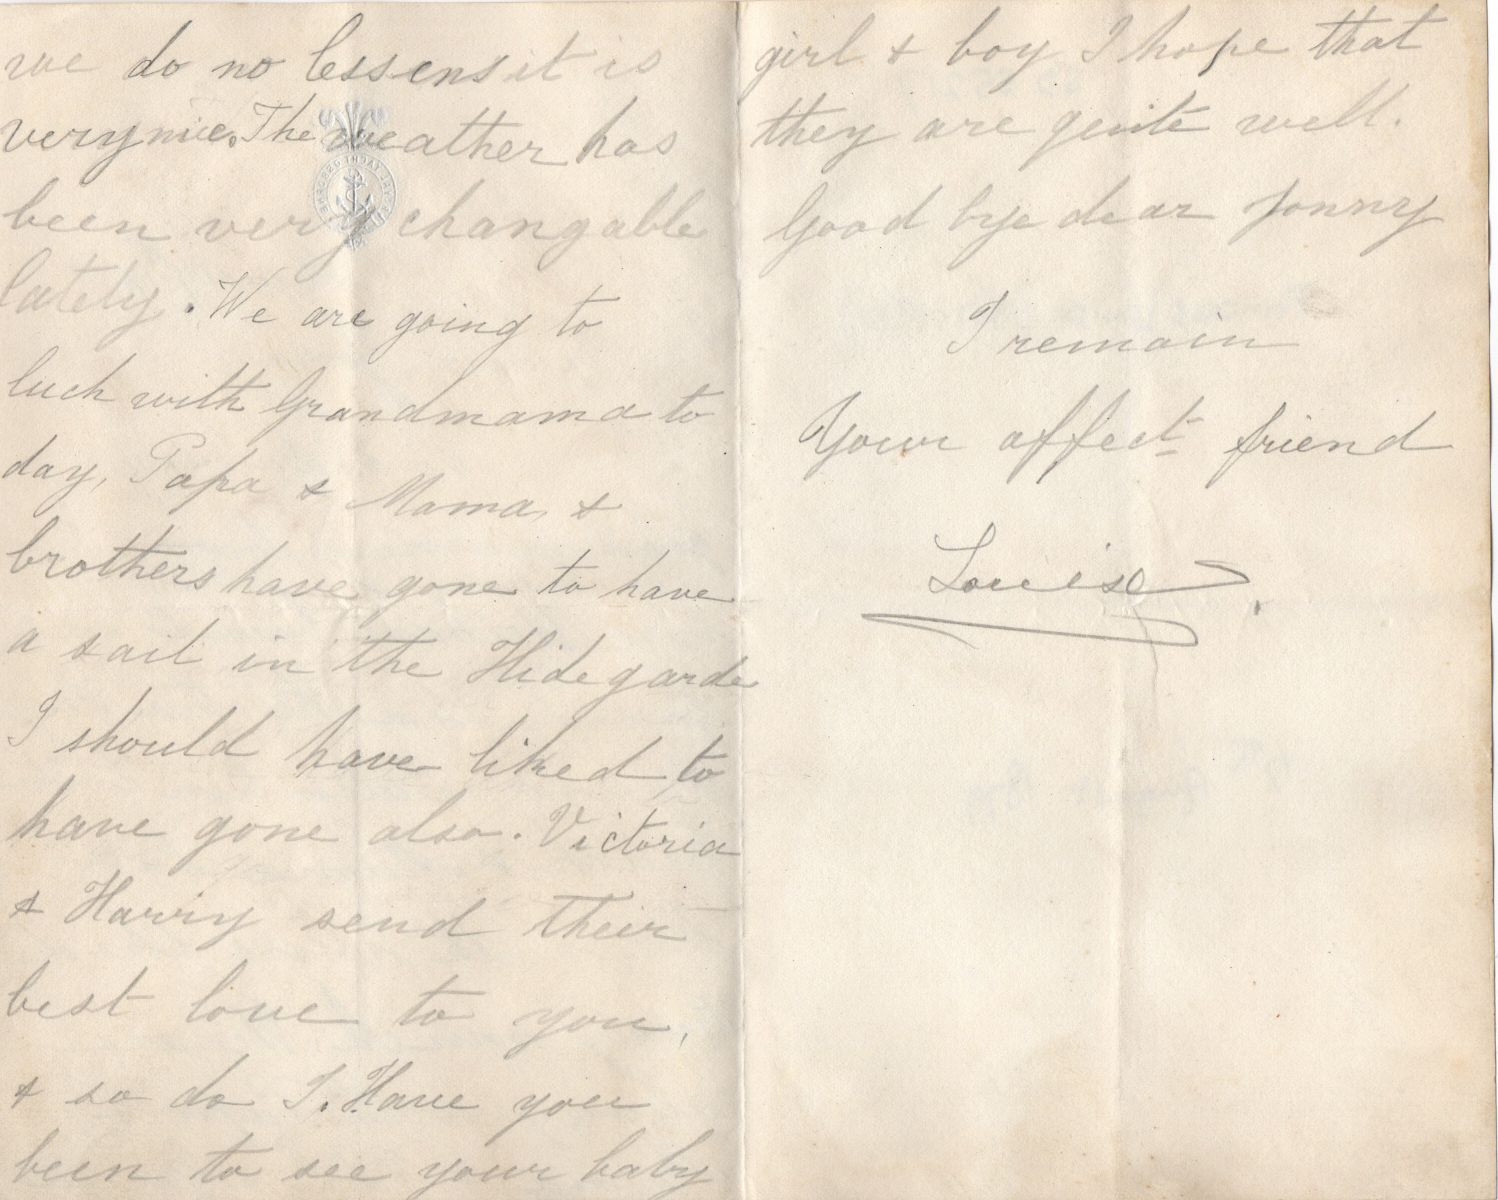 we do no lessens it is
very nice. The weather has
been very changable
lately. We are going to
luch with Grandmama to
day, Papa & Mama, &
brothers have gone to have
a sail in the Hidegarde
I should have liked to
have gone also. Victoria
& Harry send their
best love to you,
& so do I. Have you
been to see your baby
girl & boy I hope that
they are quite well.
Good bye dear Jonny
I remain
Your affect friend
Louise.